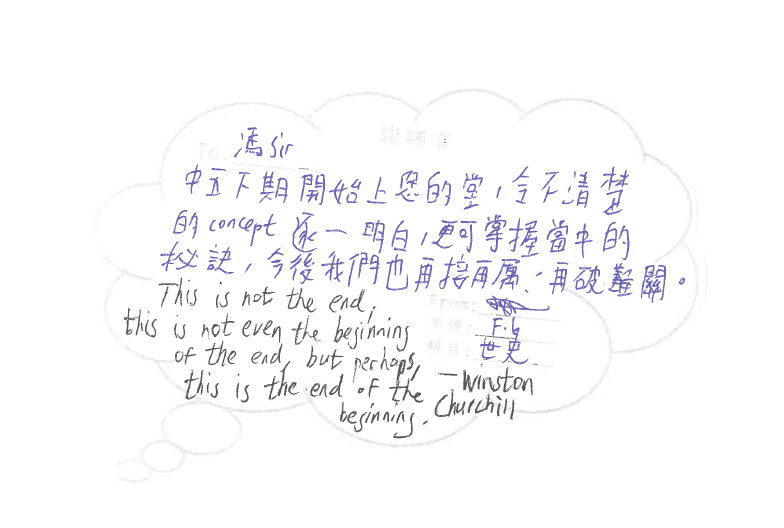 謝師言
To: 馮 Sir
中五下期開始上您的堂，令不清楚
的 concept 逐一明白，更可掌握當中的
秘訣，今後我們也再接再厲、再破難關。
This is not the end,
this is not even the beginning
of the end, but perhaps,
this is the end of the
beginning.
—Winston
Churchill
From:
年級: F.6
科目: 世史